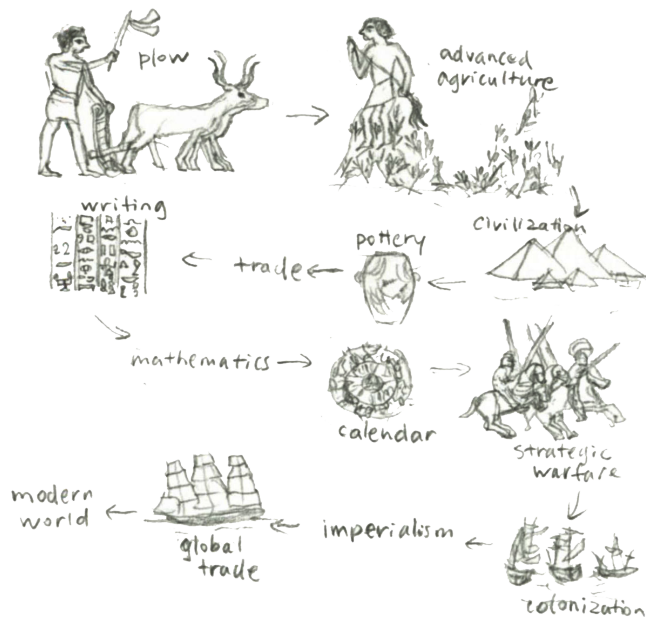 plow
advanced
agriculture
civilization
pottery
trade
writing
mathematics
calendar
strategic
warfare
colonization
imperialism
global
trade
modern
world